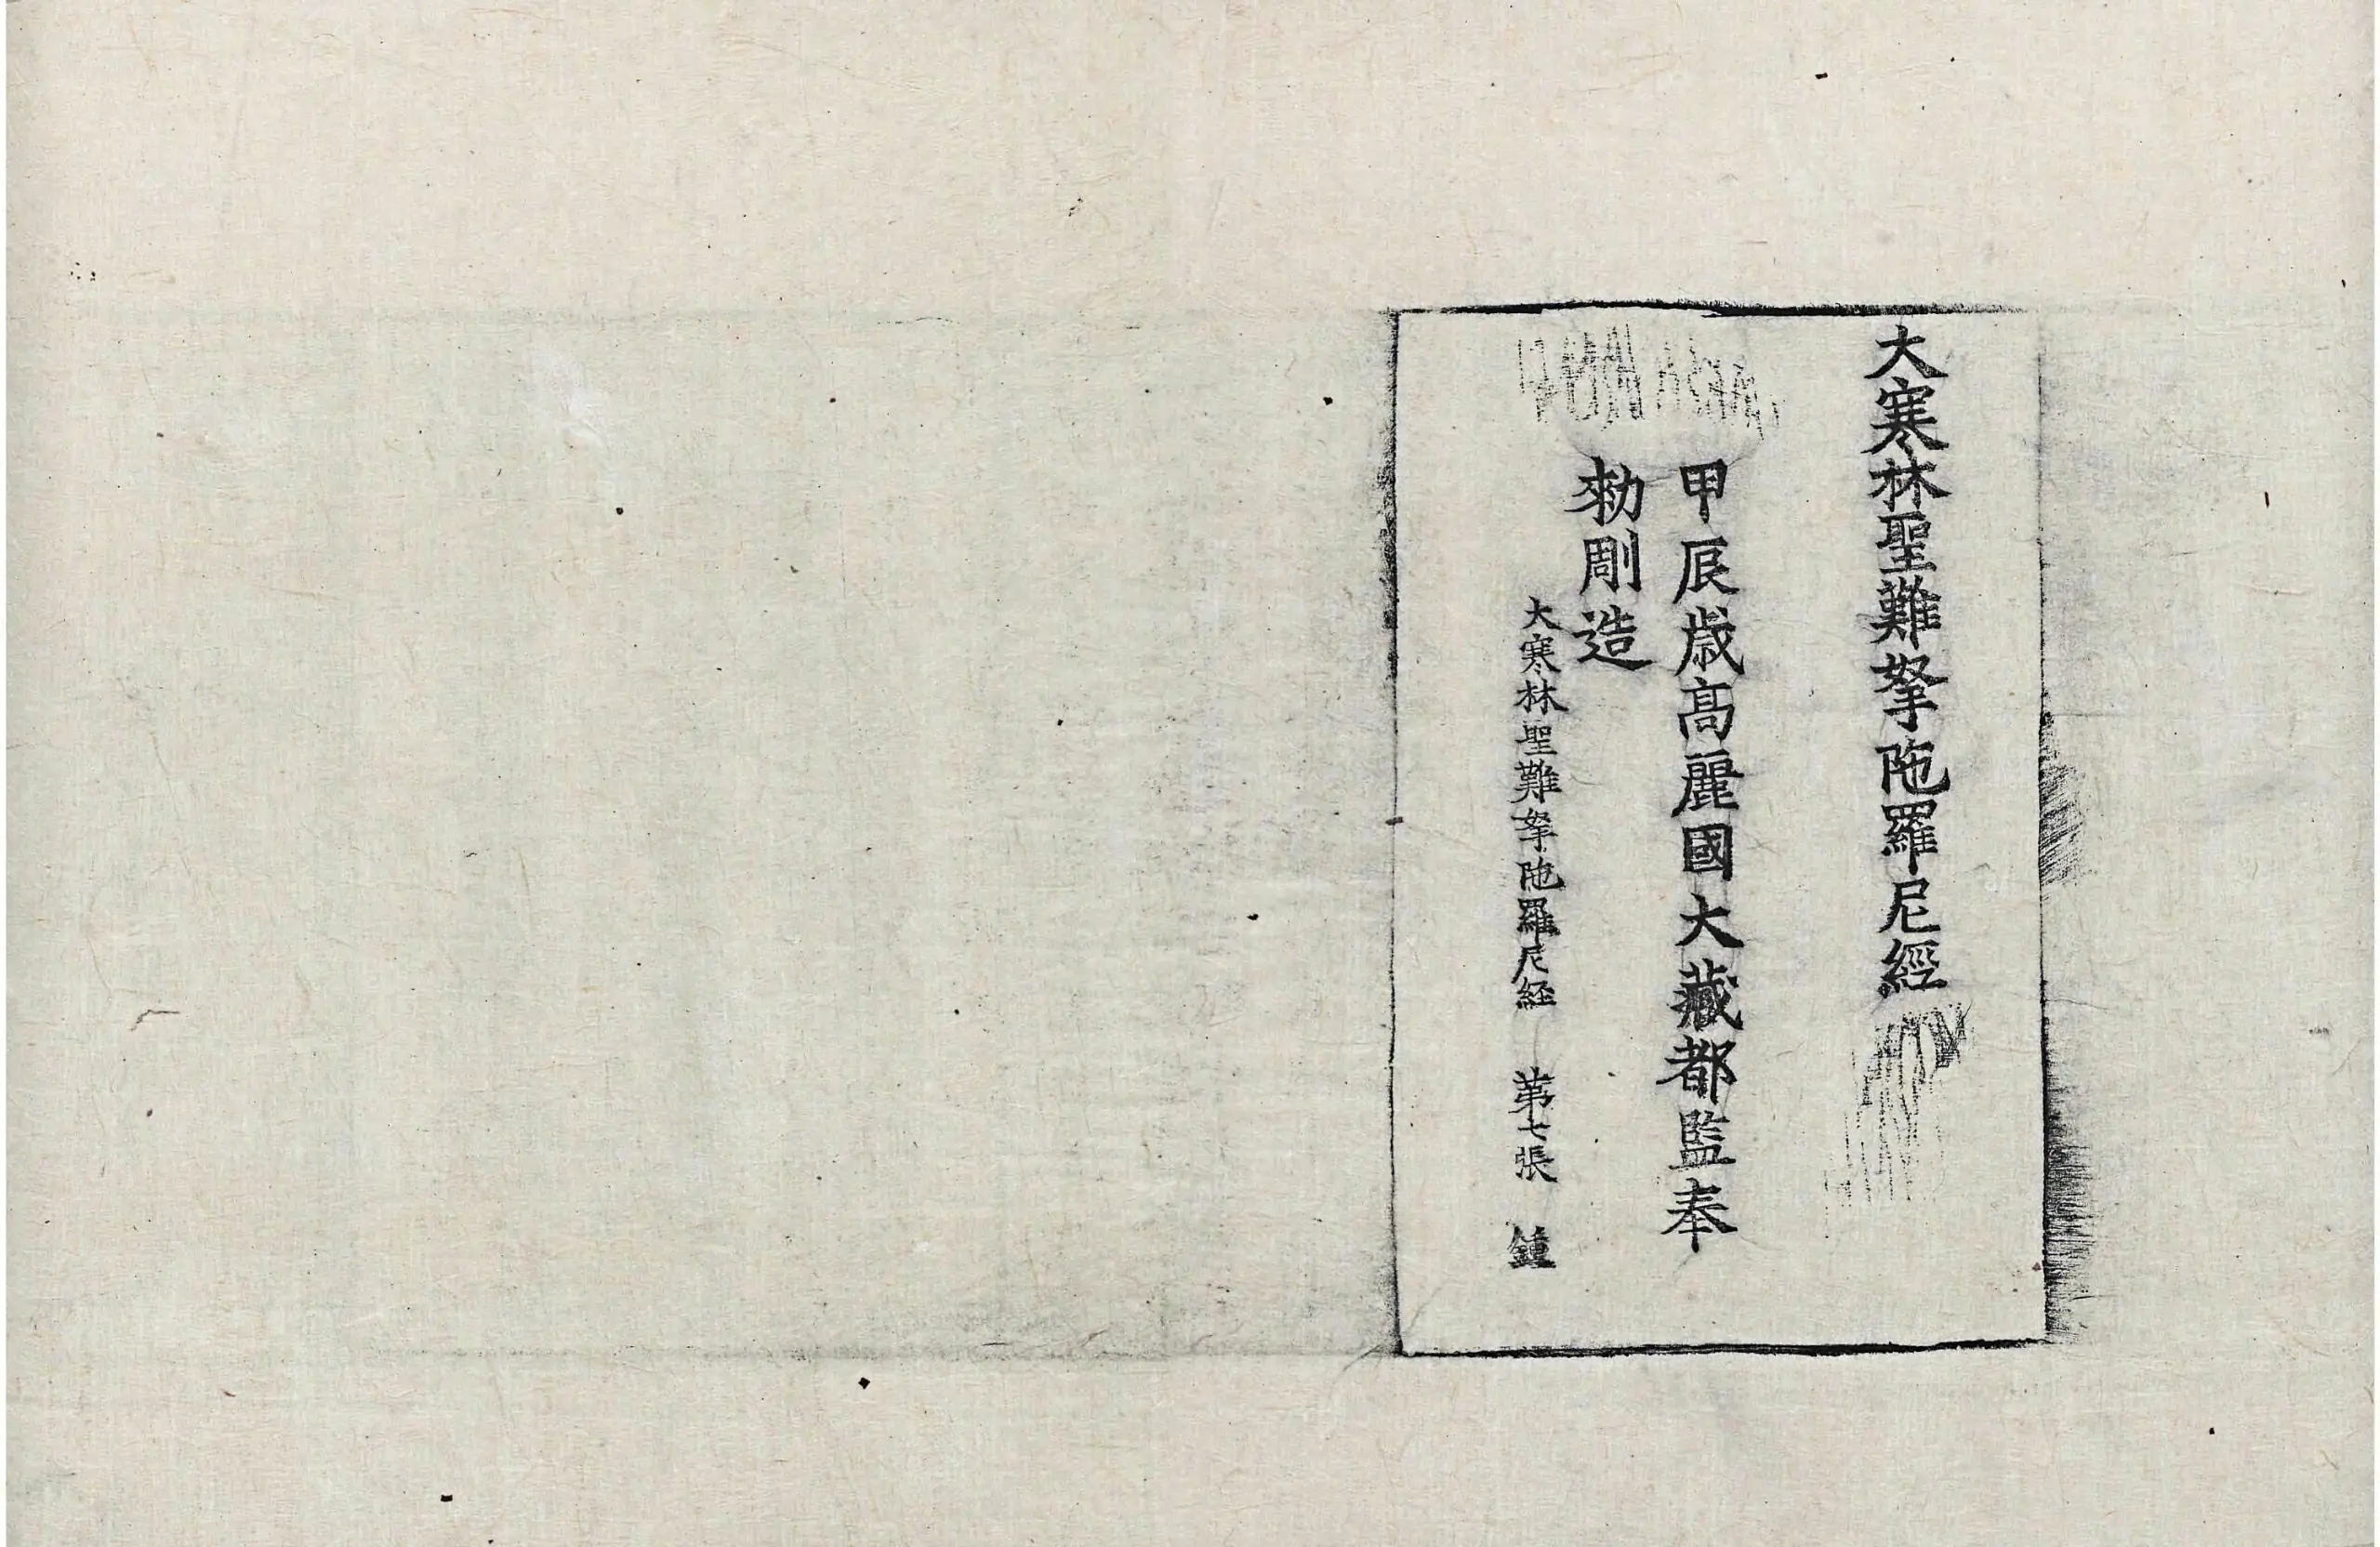 大寒林聖難拏陁羅尼經
甲辰歲高麗國大藏都監奉
勑彫造
大寒林聖難拏陁羅尼経　第七張　鍾